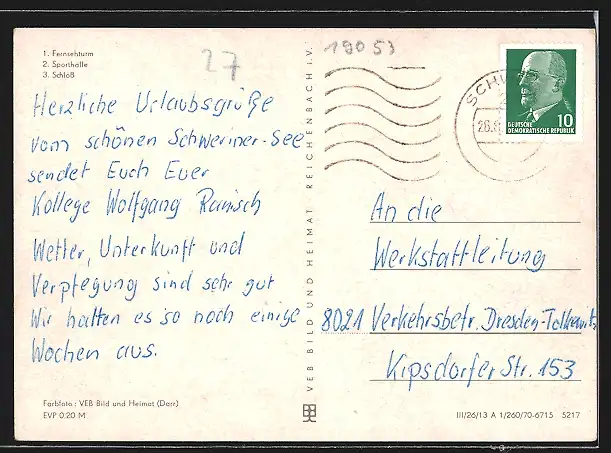 1. Fernsehturm
2. Sporthalle
3. Schloß
27
19053
Herzliche Urlaubsgrüße
vom schönen Schweriner-See
sendet Euch Euer
Kollege Wolfgang Ramisch
Wetter, Unterkunft und
Verpflegung sind sehr gut
Wir halten es so noch einige
Wochen aus.
Farbfoto: VEB Bild und Heimat (Darr)
EVP 0,20 M
VEB BILD UND HEIMAT REICHENBACH I. V.
DEUTSCHE
DEMOKRATISCHE REPUBLIK
10
An die
Werkstattleitung
8021 Verkehrsbetr. Dresden-Tolkewitz
Kipsdorfer Str. 153
III/26/13 A 1/260/70-6715 5217